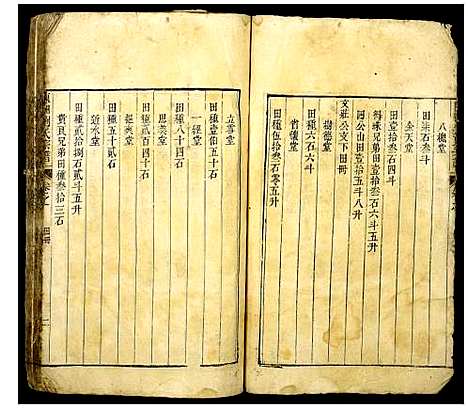 八總堂
田柒石叁斗
全天堂
田壹拾叁石四斗
得珠兄弟田壹拾叁石六斗五升
岡公山田壹拾五斗八升
文莊公支下田冊
樹德堂
田種六石六斗
省禮堂
田種伍拾叁石零五升
立雪堂
田種壹伯五十石
一經堂
田種八十四石
思美堂
田種貳百四十石
經畬堂
田種五十貳石
近水堂
田種貳拾捌石貳斗五升
貴良兄弟田種叁拾三石
宗譜
卷之
田冊
二